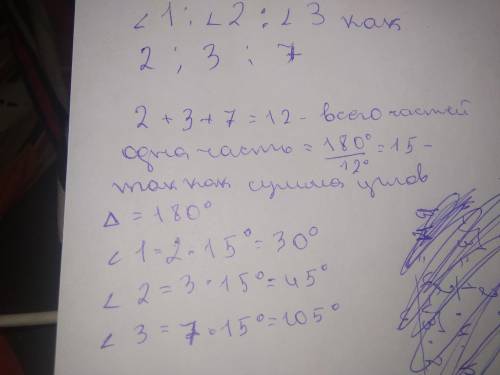 ∠1:∠2:∠3 как
2 ; 3 : 7
2 + 3 + 7 = 12 - всего частей
одна часть = 180°/12° = 15 -
так как сумма углов
Δ = 180°
∠ 1 = 2 · 15° = 30°
∠ 2 = 3 · 15° = 45°
∠ 3 = 7 · 15° = 105°